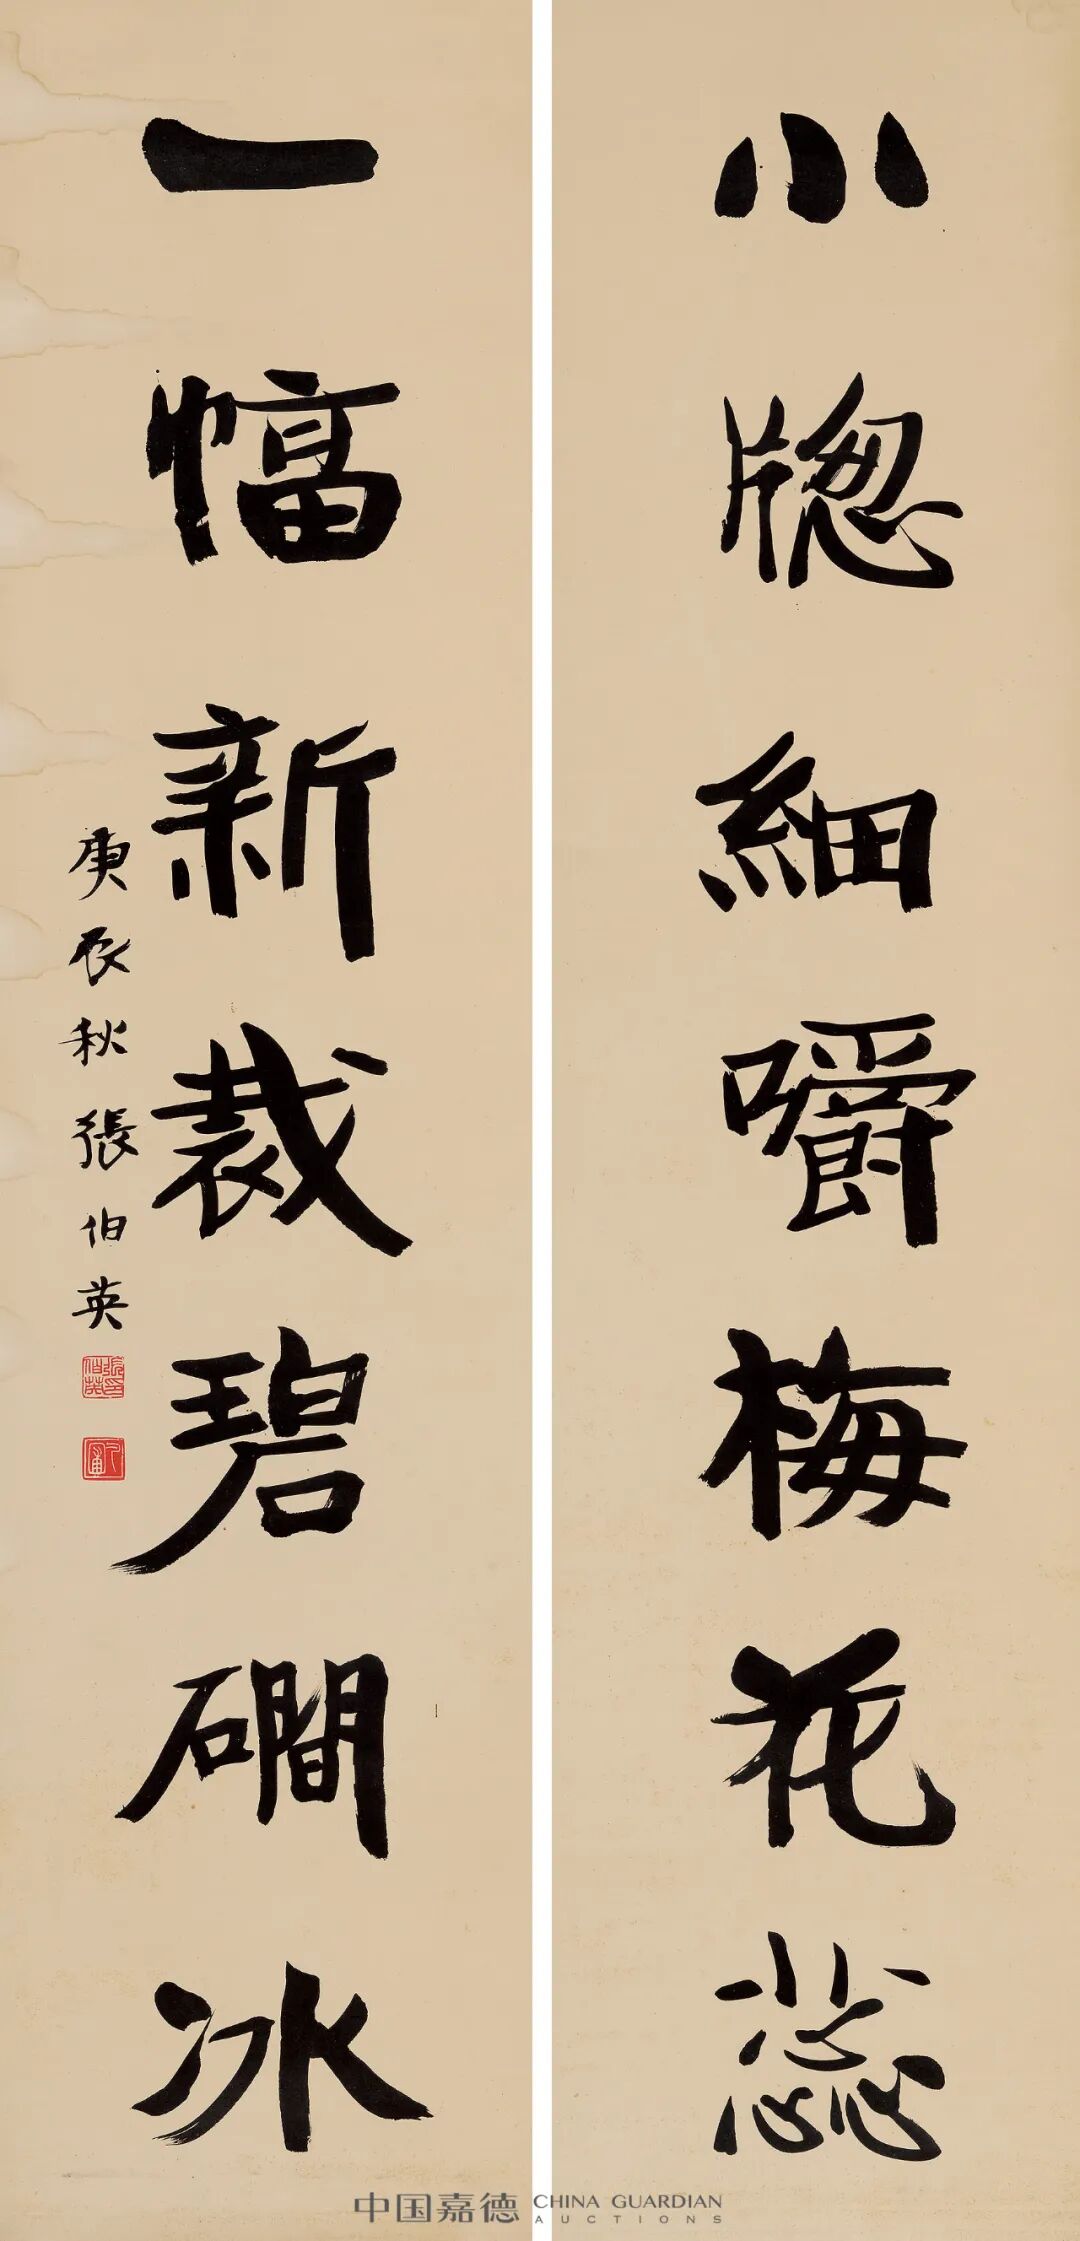 小牎細嚼梅花蕊
一幅新裁碧磵冰
庚辰秋張伯英
張伯英印
中国嘉德 CHINA GUARDIAN AUCTIONS